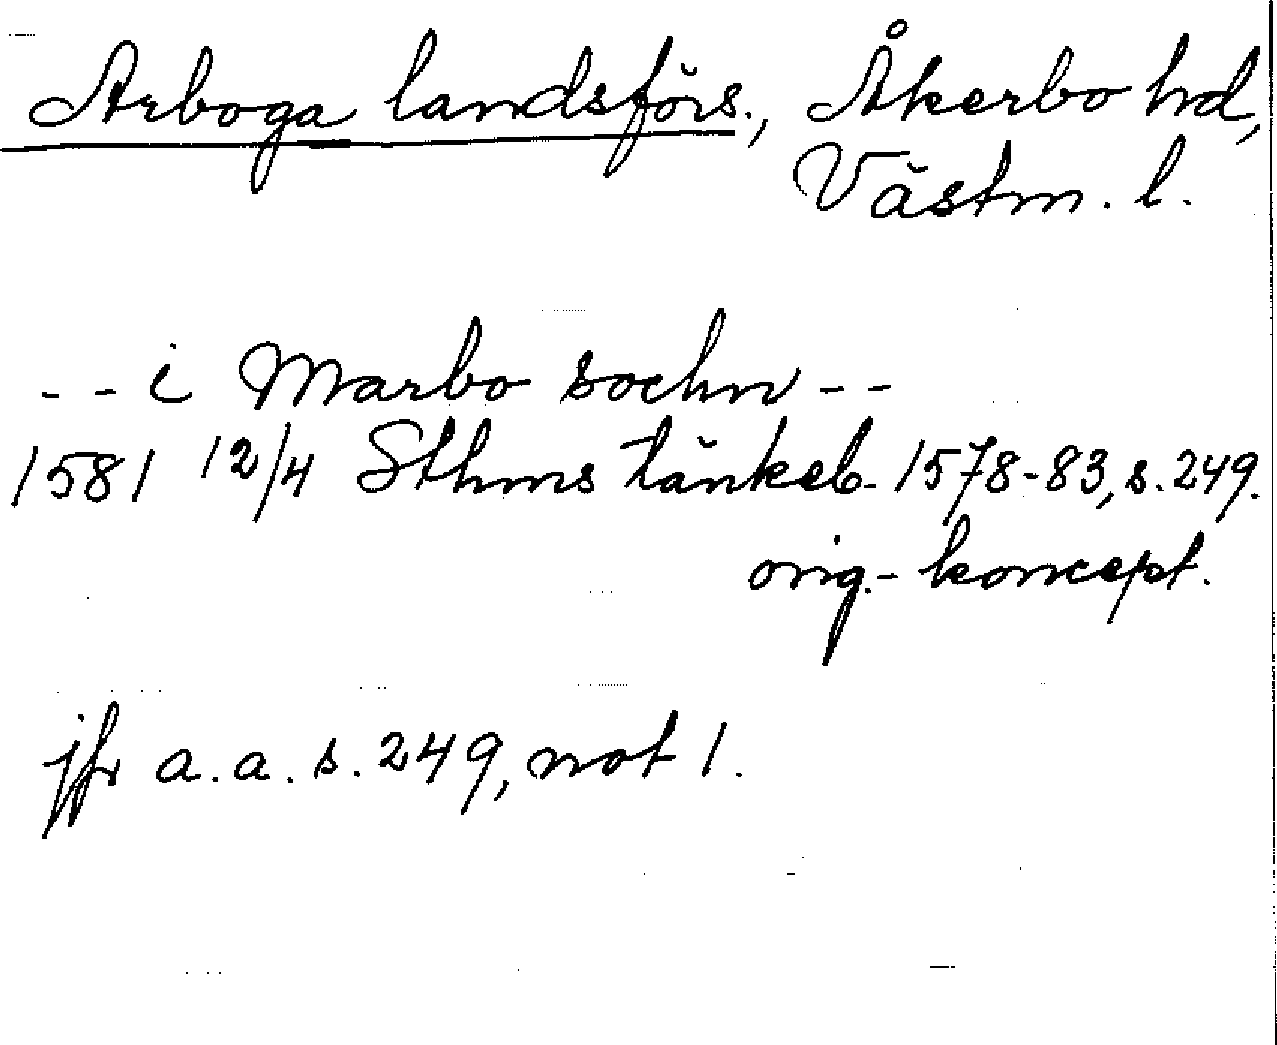 Arboga landsförs., Åkerbo hd,
Västm. l.
-- i Marbo sochn --
1581 12/4 Sthms tänkeb. 1578-83, s. 249.
orig.-koncept.
jfr a.a. s. 249, not 1.